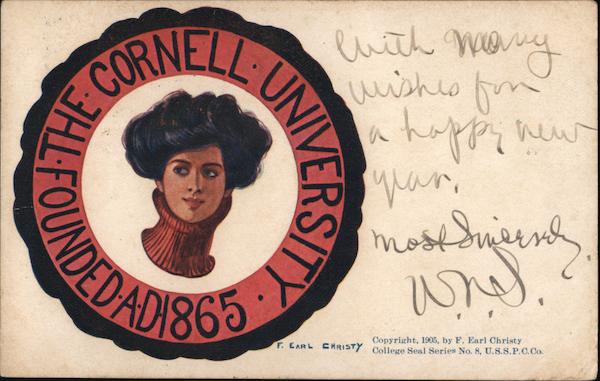 THE · CORNELL · UNIVERSITY ·
FOUNDED · A·D · 1865 ·
With many
wishes for
a happy new
year.
Most Sincerely,
W.N.S.
F. EARL CHRISTY
Copyright, 1905, by F. Earl Christy
College Seal Series No. 8, U.S.S.P.C.Co.